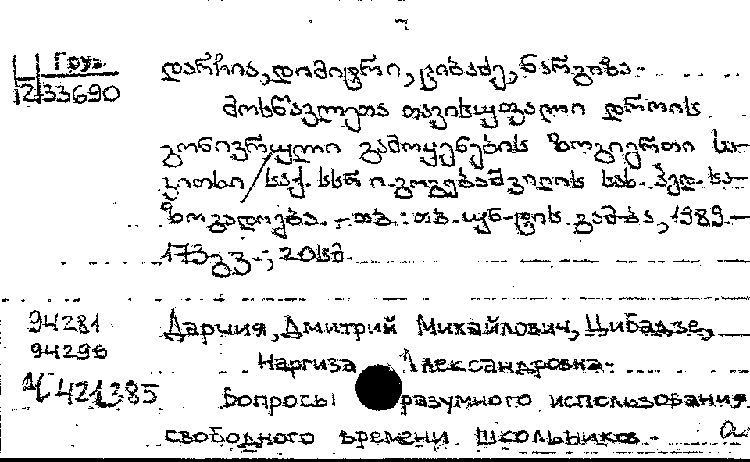 Ц Груз
2 33690
დარჩია, დიმიტრი, ციბაძე, ნარგიზა.
მოსწავლეთა თავისუფალი დროის
გონივრული გამოყენების ზოგიერთი სა-
კითხი / საქ. სსრ ი. გოგებაშვილის სახ. პედ. სა-
ზოგადოება. - თბ. : თბ. უნ-ტის გამ-ბა, 1989. -
173 გვ. ; 20 სმ.
94281
94296
421385
Дарчия, Дмитрий Михайлович, Цибадзе,
Наргиза Александровна.
Вопросы разумного использования
свободного времени школьников.